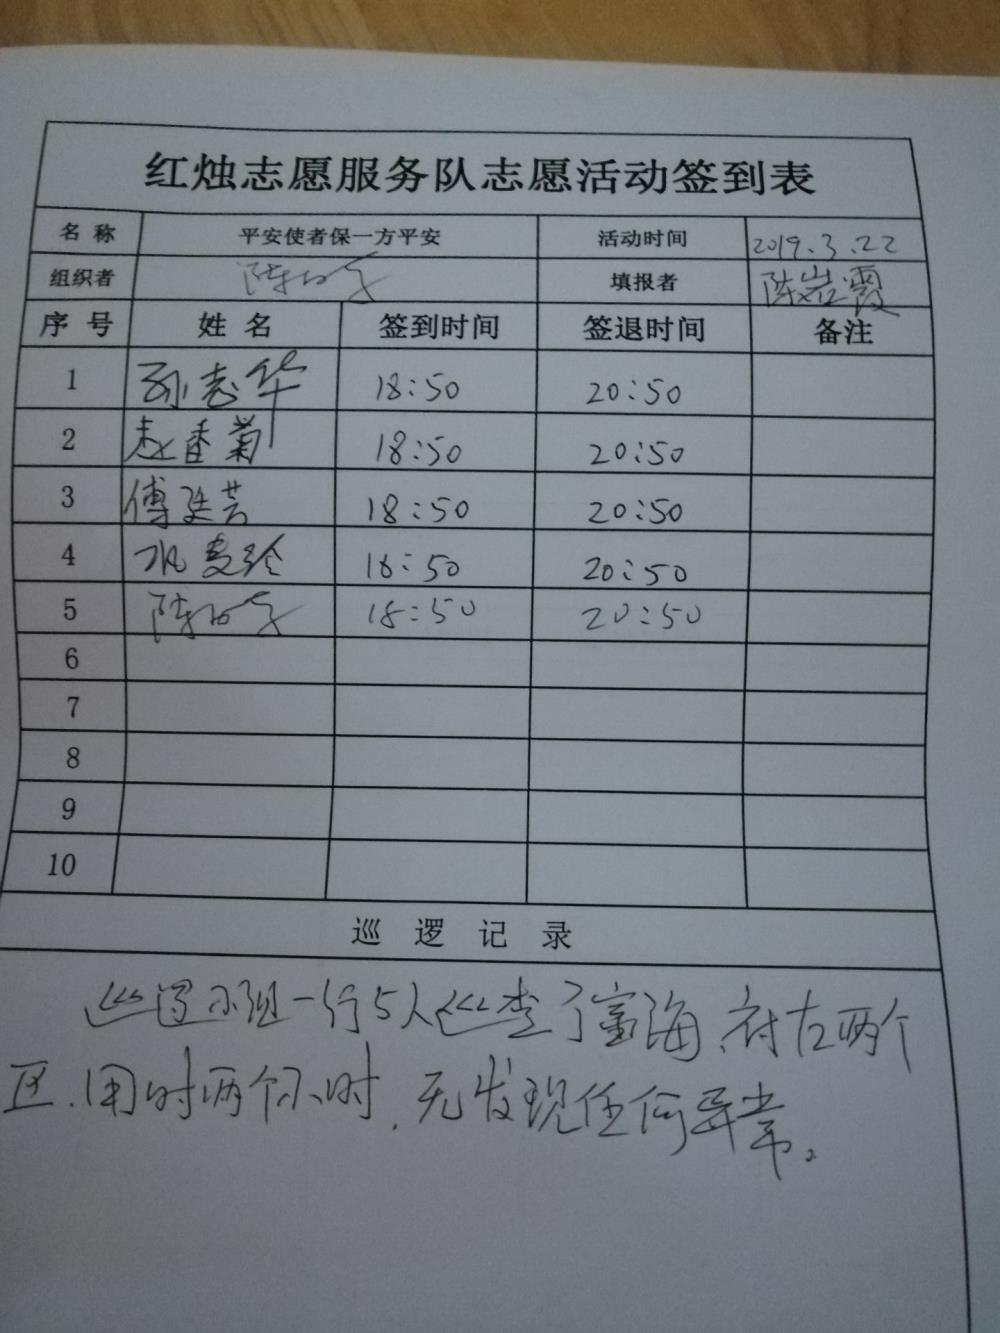 红烛志愿服务队志愿活动签到表
名 称 平安使者保一方平安 活动时间 2019.3.22
组织者 填报者 陈岩霞
序 号 姓 名 签到时间 签退时间 备注
1 孙志华 18:50 20:50
2 赵香菊 18:50 20:50
3 傅廷芸 18:50 20:50
4 18:50 20:50
5 18:50 20:50
6
7
8
9
10
巡 逻 记 录
巡逻小组一行5人巡查了富海、 两个
区.用时两个小时,无发现任何异常。